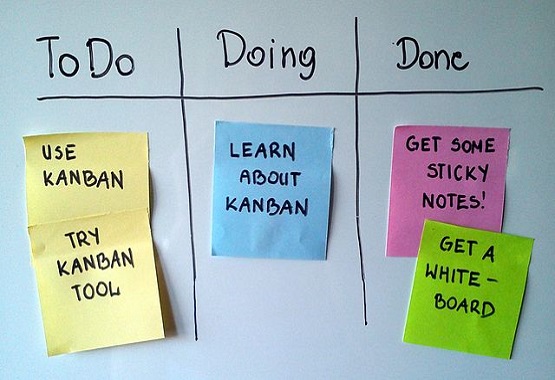 To Do
Doing
Done
USE
KANBAN
TRY
KANBAN
TOOL
LEARN
ABOUT
KANBAN
GET SOME
STICKY
NOTES!
GET A
WHITE-
BOARD